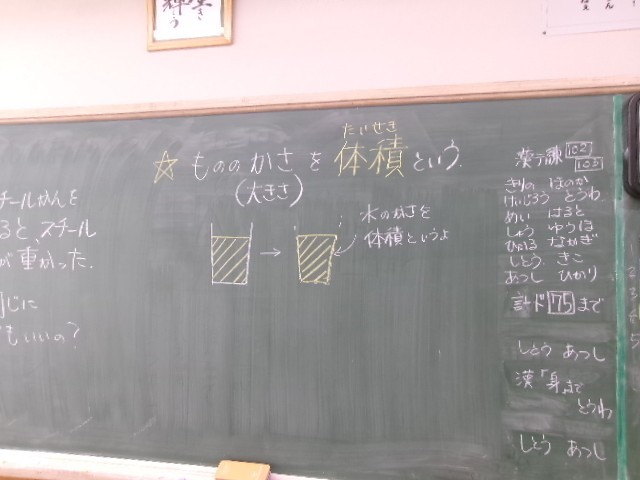 輝
こう
き
ん
え
たいせき
☆ もののかさを体積という。
(大きさ)
→
水のかさを
体積というよ
チールかんを
ると、スチール
が重かった。
じに
もいいの?
漢テ練 102
103
きりの はのか
けいじろう とうわ
めい はると
しゅう ゆうほ
ひゅうほ なかぎ
しとう きこ
あつし ひかり
計ド 75 まで
しとう あつし
漢「身」まで
とうわ
しとう あつし
2
3
4
5